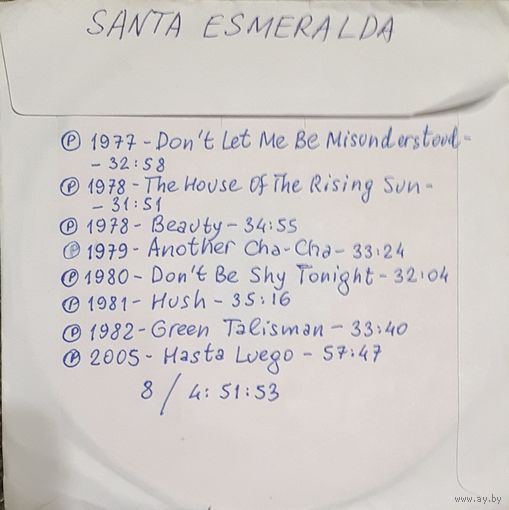 SANTA ESMERALDA
Ⓟ 1977 - Don't Let Me Be Misonderstood -
- 32:58
Ⓟ 1978 - The House Of The Rising Sun -
- 31:51
Ⓟ 1978 - Beauty - 34:55
Ⓟ 1979 - Another Cha-Cha - 33:24
Ⓟ 1980 - Don't Be Shy Tonight - 32:04
Ⓟ 1981 - Hush - 35:16
Ⓟ 1982 - Green Talisman - 33:40
Ⓟ 2005 - Hasta Luego - 57:47
8 / 4:51:53
www.ay.by